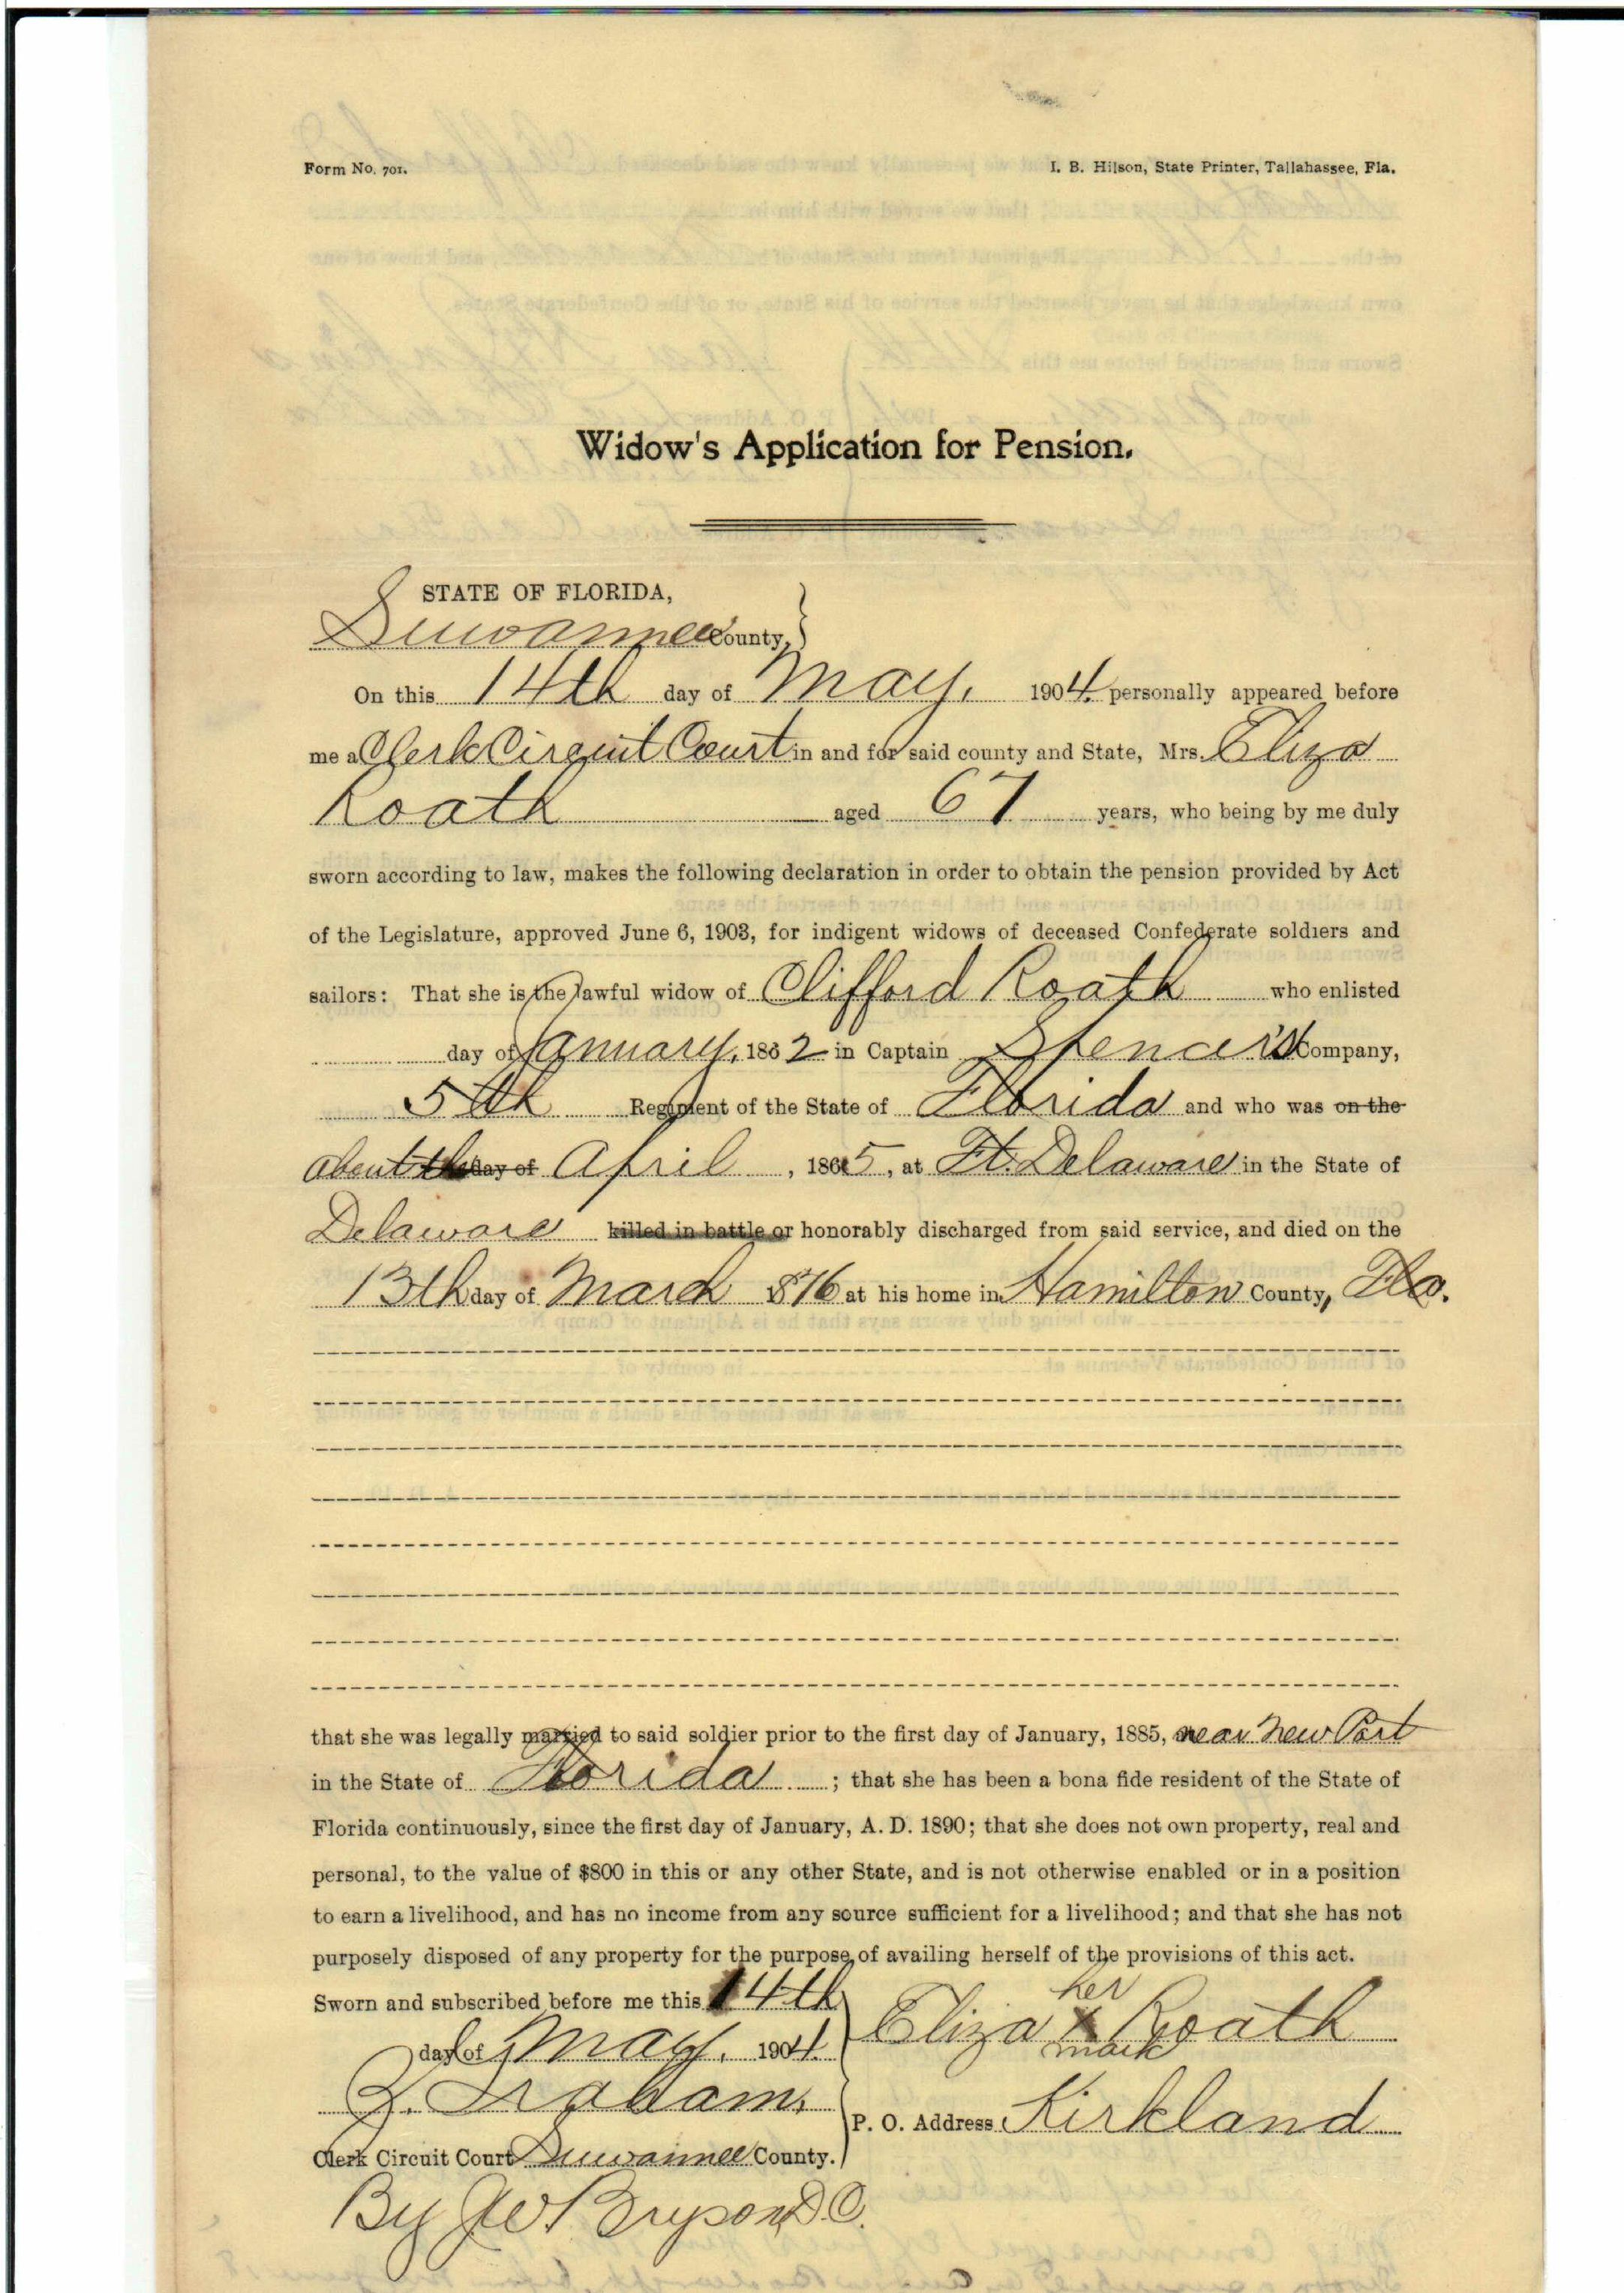 Form No. 701.
I. B. Hilson, State Printer, Tallahassee, Fla.
Widow's Application for Pension.
STATE OF FLORIDA,
Suwannee County,
On this 14th day of May, 1904. personally appeared before
me a Clerk Circuit Court in and for said county and State, Mrs. Eliza
Roath aged 67 years, who being by me duly
sworn according to law, makes the following declaration in order to obtain the pension provided by Act
of the Legislature, approved June 6, 1903, for indigent widows of deceased Confederate soldiers and
sailors: That she is the lawful widow of Clifford Roath who enlisted
day of January, 1862 in Captain Spencer's Company,
5th Regiment of the State of Florida and who was on the
about the day of April, 1865, at Ft. Delaware in the State of
Delaware killed in battle or honorably discharged from said service, and died on the
13th day of March 1876 at his home in Hamilton County, Fla.
that she was legally married to said soldier prior to the first day of January, 1885, near New Port
in the State of Florida; that she has been a bona fide resident of the State of
Florida continuously, since the first day of January, A. D. 1890; that she does not own property, real and
personal, to the value of $800 in this or any other State, and is not otherwise enabled or in a position
to earn a livelihood, and has no income from any source sufficient for a livelihood; and that she has not
purposely disposed of any property for the purpose of availing herself of the provisions of this act.
Sworn and subscribed before me this 14th
day of May, 1904.
her
Eliza X Roath
mark
Graham,
P. O. Address Kirkland
Clerk Circuit Court Suwannee County.
By J W Bryson D.C.